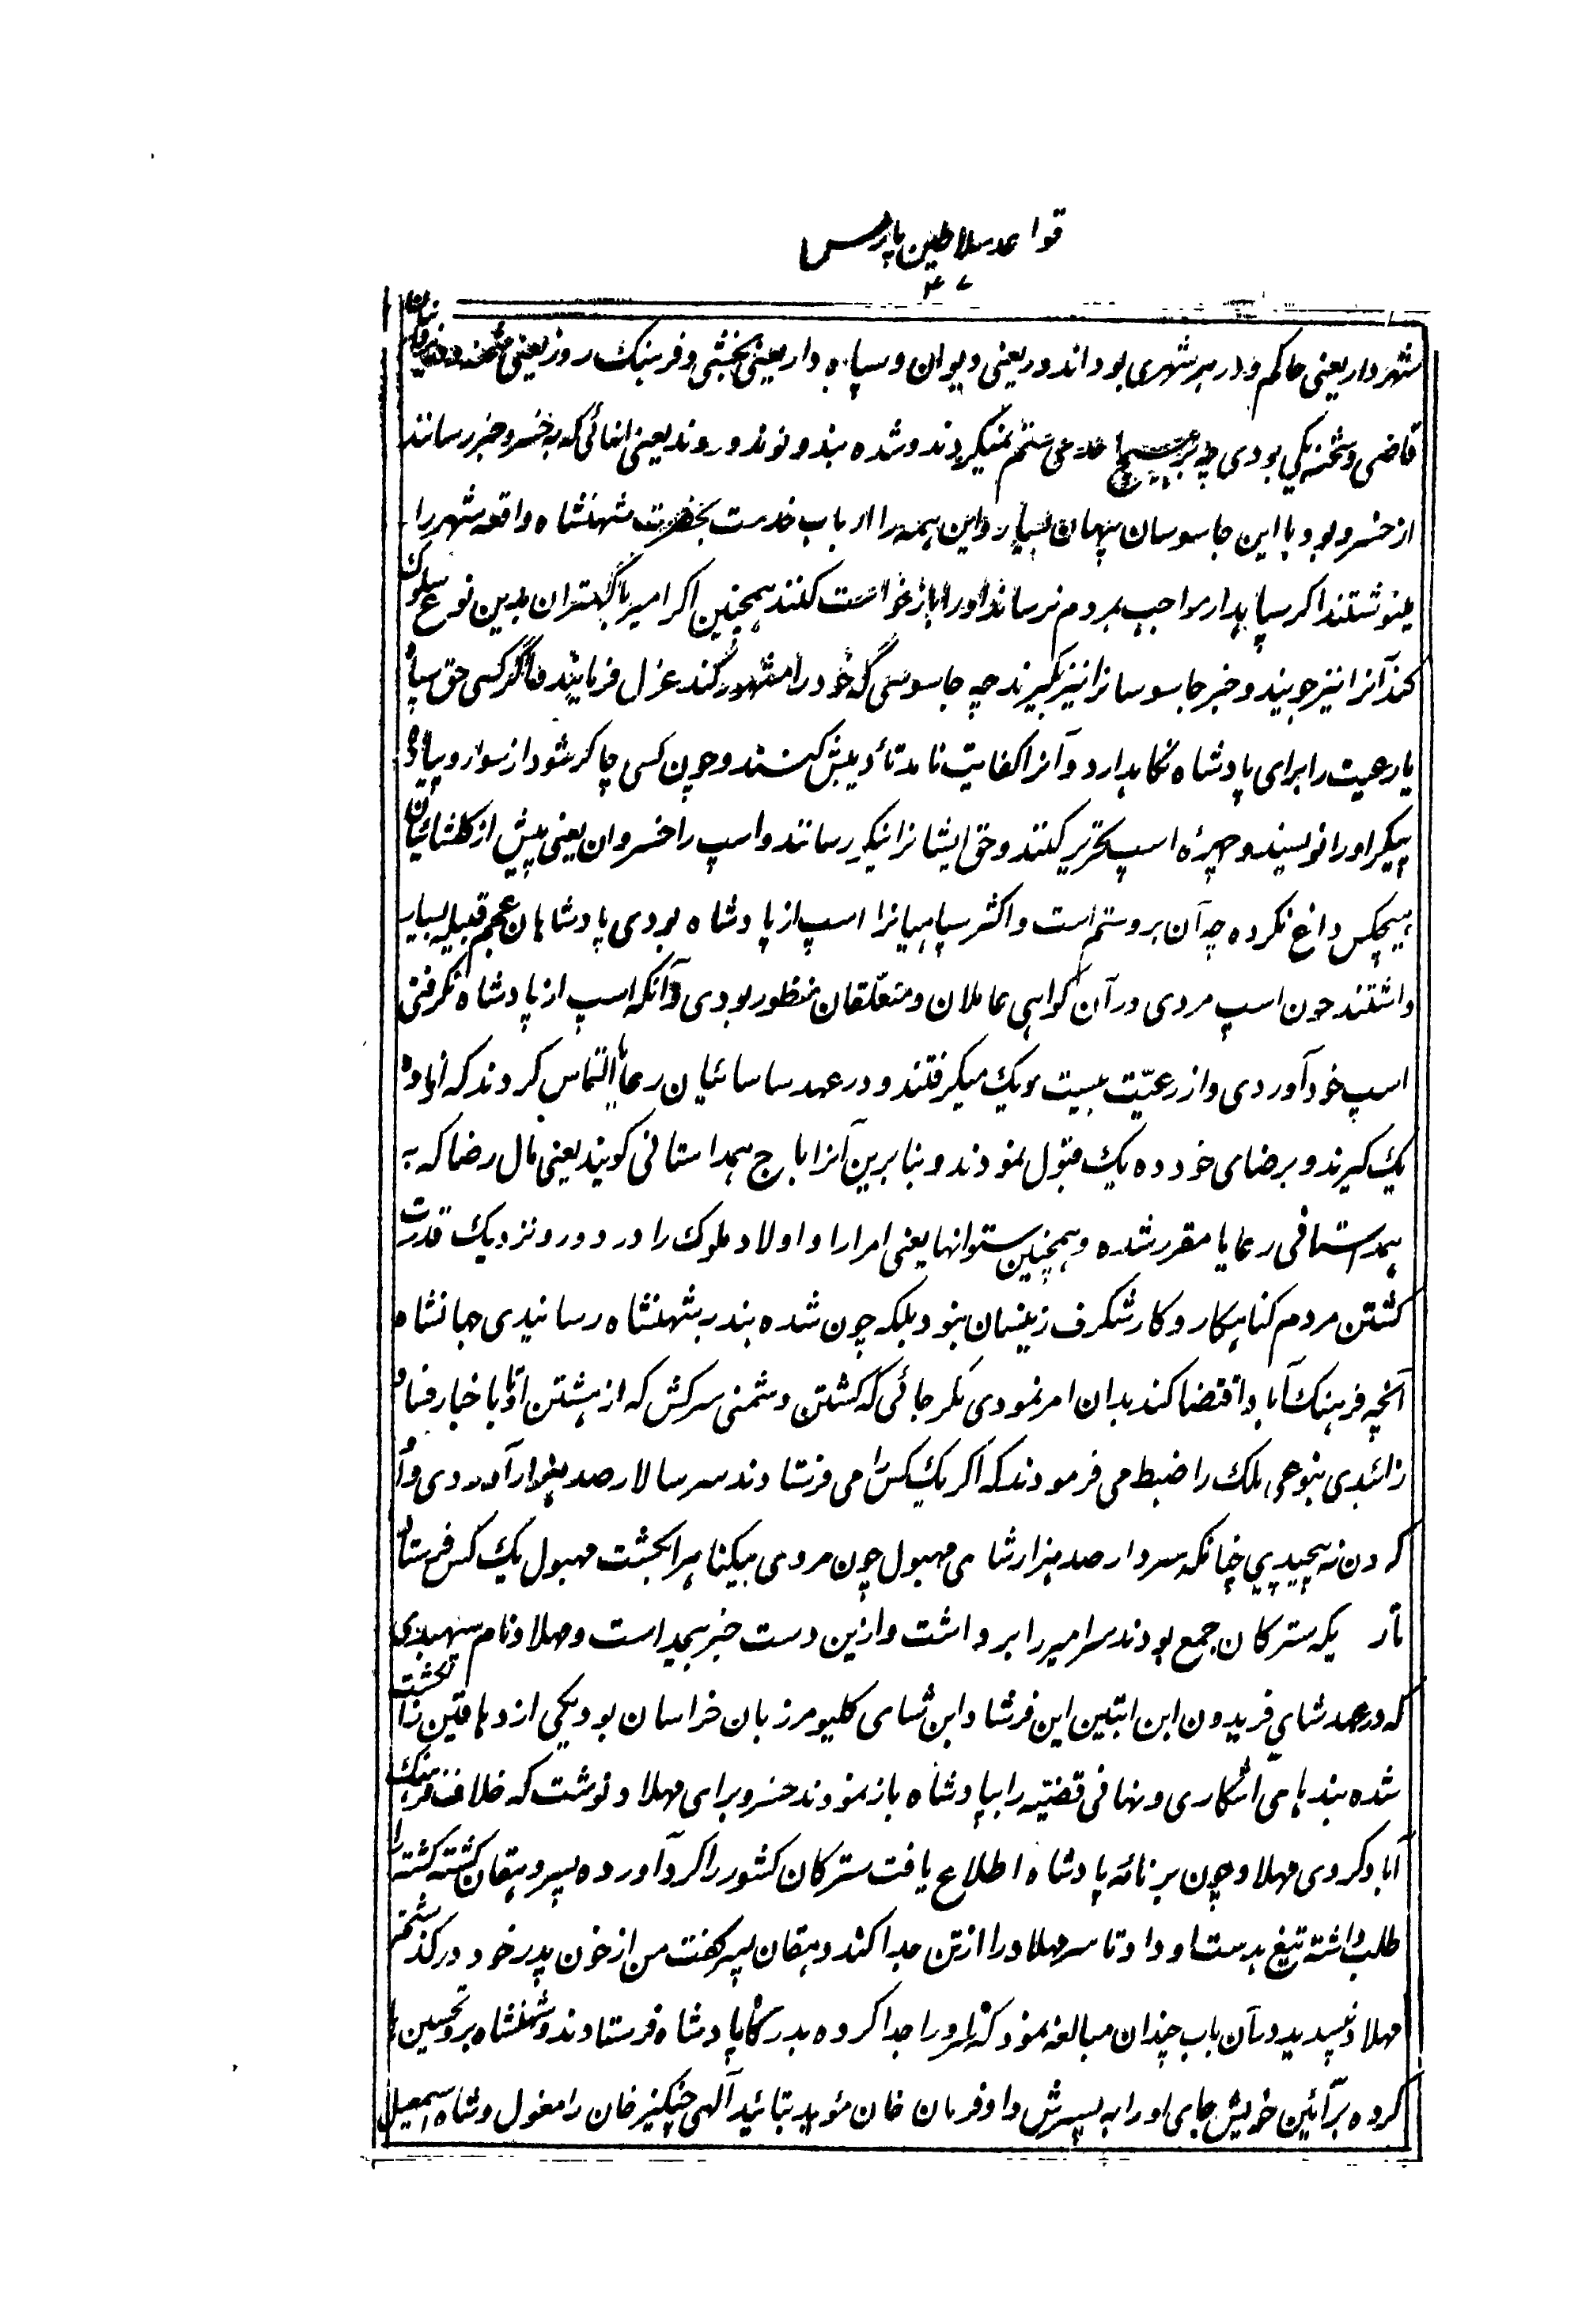 قواعد سلاطین پارس
۴۷
شهردار یعنی حاکم و در هر شهری بود اندور یعنی دیوان و سپاه دار یعنی بخشی و فرهنگ روز یعنی
قاضی و شحنه یکی بودی چه مدعی ستم نمیکردند و شده بند و نوند و روند یعنی انهائی که به خسرو خبر رسانند
از خسرو بود با این جاسوسان پنهان بسیار و این همه را ارباب خدمت بحضرت شهنشاه واقعه شهر را
مینوشتند اکر سپاهدار مواجب بمردم نرساند او را بازخواست کنند همچنین اکر امیر با کهتران بدین نوع سلوک
کند آنرا نیز جویند و خبر جاسوسانرا نیز بگیرند چه جاسوسی که خود را مشهور کند عزل فرمایند و اگر کسی حق سپاه
یا رعیت را برای پادشاه نگاهدارد و آنرا کفایت نامد تأدیبش کنند و چون کسی چاکر شود از سوار و پیاده
پیکر او را نویسند و چهرهٔ اسپ تحریر کنند و حق ایشانرا نیکو رسانند و اسپ را خسروان یعنی پیش از گلشائیان
هیچکس داغ نکرده چه آن برو ستم است و اکثر سپاهیانرا اسپ از پادشاه بودی پادشاهان عجم قبیله بسیار
داشتند چون اسپ مردی در آن گواهی عاملان و متعلقان منظور بودی و آنکه اسپ از پادشاه نگرفتی
اسپ خود آوردی و از رعیّت بیست و یک میکرفتند و در عهد ساسانیان رعایا التماس کردند که از ده
یک گیرند و برضای خود ده یک قبول نمودند و بنابرین آنرا باج همداستانی کویند یعنی مال رضا که به
همداستانی رعایا مقرر شده و همچنین ستوانها یعنی امرا را و اولاد ملوک را در دور و نزدیک قدرت
کشتن مردم کناهکار و کار شگرف زینسان نبود بلکه چون شده بند به شهنشاه رسانیدی جهانشاه
آنچه فرهنگ آباد اقتضا کند بدان امر نمودی مگر جائی که کشتن دشمنی سرکش که از هشتن او تا با خبار فساد
زائیدی بنوعی ملک را ضبط می فرمودند که اکر یک کس را می فرستادند سر سالار صد هزار آوردی و او
کردن نه پیچیدی چنانکه سردار صد هزار شای مهبول چون مردی بیکناهرا بکشت مهبول یک کس فرستاد
تا در یکه سترکان جمع بودند سر امیر را برداشت و ازین دست خبر بیحد است و مهلاد نام سپهبدی
که در عهد شای فریدون ابن ابتین ابن فرشاد ابن شای کلیو مرزبان خراسان بود یکی از دهاقین را بکشت
شده بندهای آشکاری و نهانی قضیّه را بپادشاه باز نمودند خسرو برای مهلاد نوشت که خلاف فرهنک
آباد کردی مهلاد چون بر نامه پادشاه اطلاع یافت سترکان کشور را کرد آورده پسر دهقان کشته کشته را
طلب داشته تیغ بدست او داد تا سر مهلاد را از تن جدا کند دهقان پسر کفت من از خون پدر خود درکذشتم
مهلاد نپسندید و در آن باب چندان مبالغه نمود که سر او را جدا کرده بدرگاه پادشاه فرستادند و شهنشاه برو تحسین
کرده بر آئین خویش جای او را به پسرش داد فرمان خان مؤید بتائید آلهی چنکیز خان را مغول و شاه اسمعیل